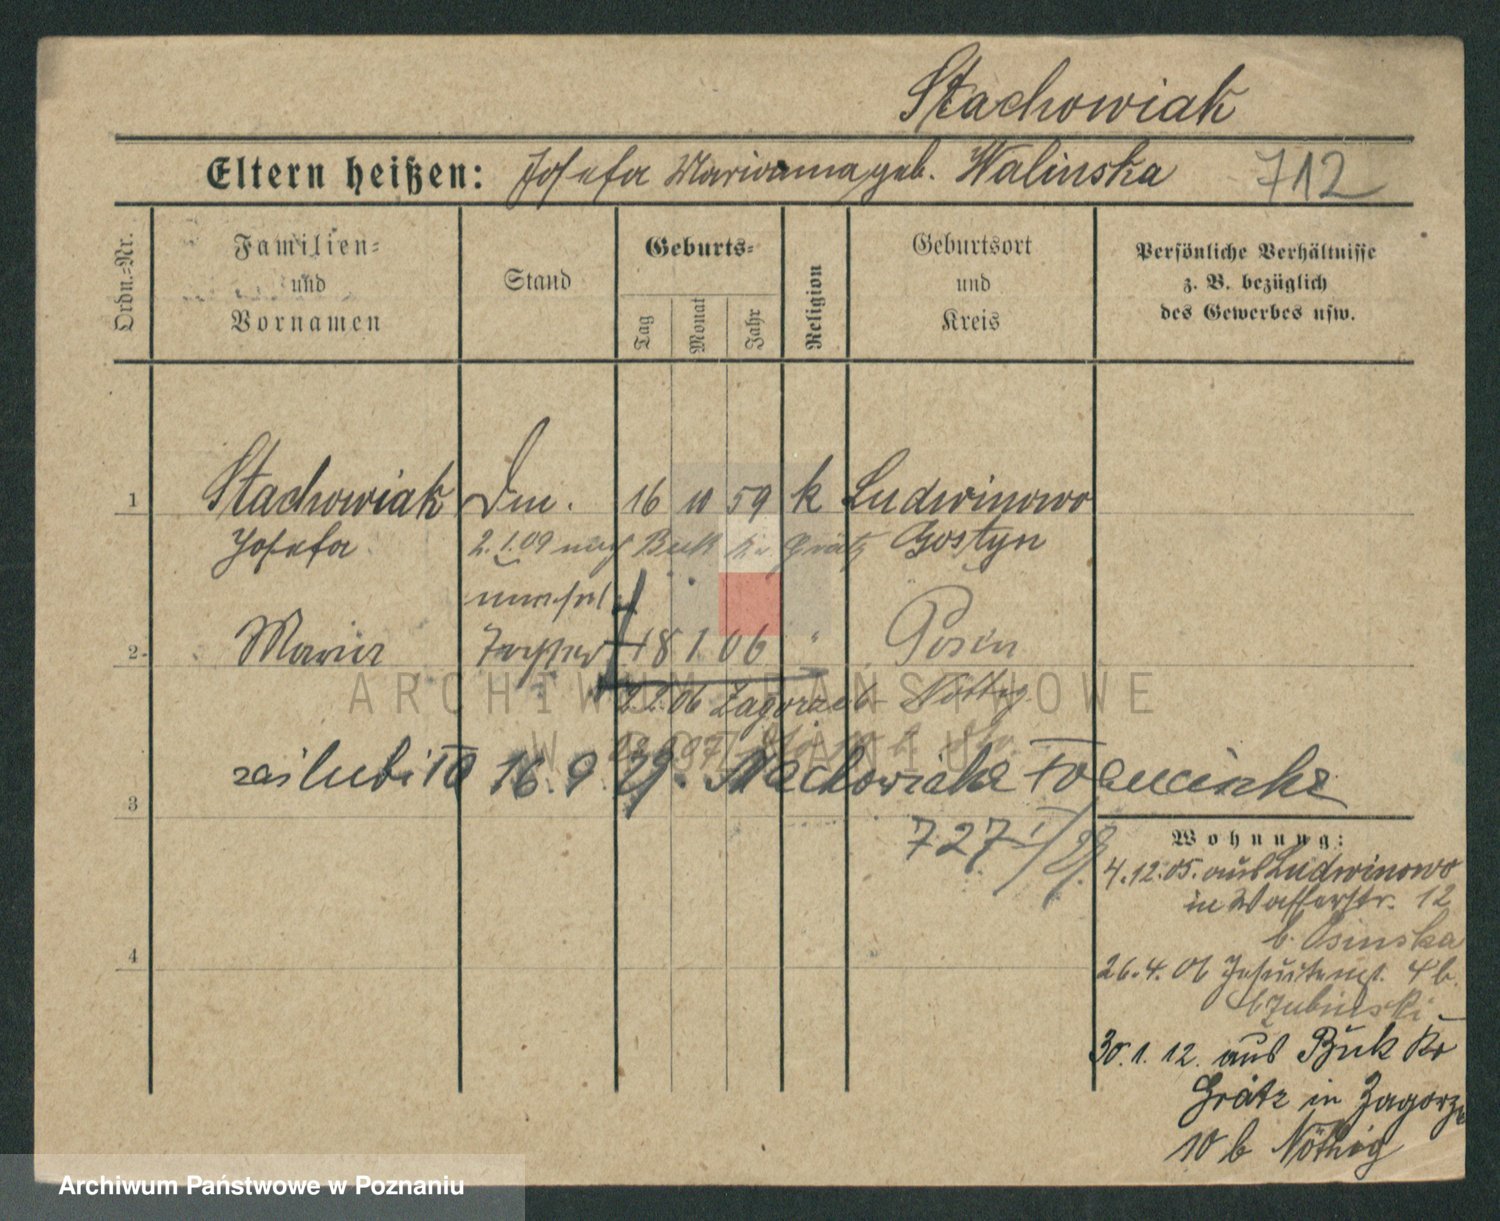 Stachowiak
Eltern heißen: Josefa Marianna geb. Walinska 712
Ordn.-Nr.
Familien-
und
Vornamen
Stand
Geburts-
Tag
Monat
Jahr
Religion
Geburtsort
und
Kreis
Persönliche Verhältnisse
z. B. bezüglich
des Gewerbes usw.
1 Stachowiak 16 10 59 k Ludwinowo
Josefa 2.1.09 nach Buk Kr. Grätz Gostyn
unehel
2 Maria Tochter 18 1 06 " Posen
06 Zagorze b Nöthig
zaślubiła 16.9.29. Stachowiaka Franciszka
3
727 /29.
Wohnung:
4.12.05. aus Ludwinowo
in Wasserstr. 12
b. Osinska
4
26.4.06 Jesuitenst. 4 b.
30.1.12. aus Buk Kr
Grätz in Zagorze
10 b Nöthig
ARCHIWUM PAŃSTWOWE
W POZNANIU
Archiwum Państwowe w Poznaniu